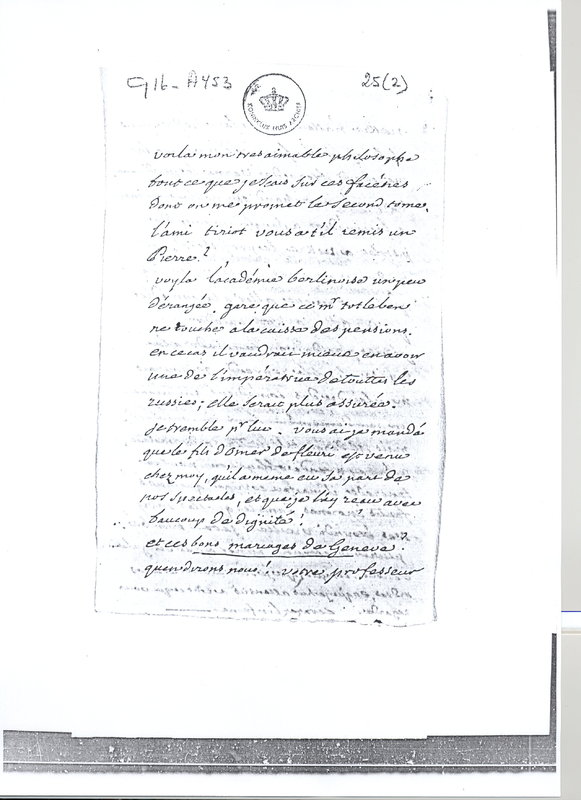 G16-A453
25(2)
KONINKLIJK HUIS ARCHIEF
voila mon tres aimable philosophe
tout ce que je scais sur ces facéties
dont on me promet le second tome.
l'ami tiriot vous a t'il remis un
Pierre?
voyla l'académie berlinoise un peu
dérangée. gare que ce mr totleben
ne touche a la caisse des pensions.
en ce cas il vaudrait mieux en avoir
une de l'impératrice de touttes les
russies; elle serait plus assurée.
je tremble pr luc. vous ai je mandé
que le fils d'Omer de fleuri est venu
chez moy, qu'il a meme eu sa part de
nos spectacles, et que je l'ay reçu avec
baucoup de dignité!
et ces bons mariages de Geneve
qu'en dirons nous! votre professeur